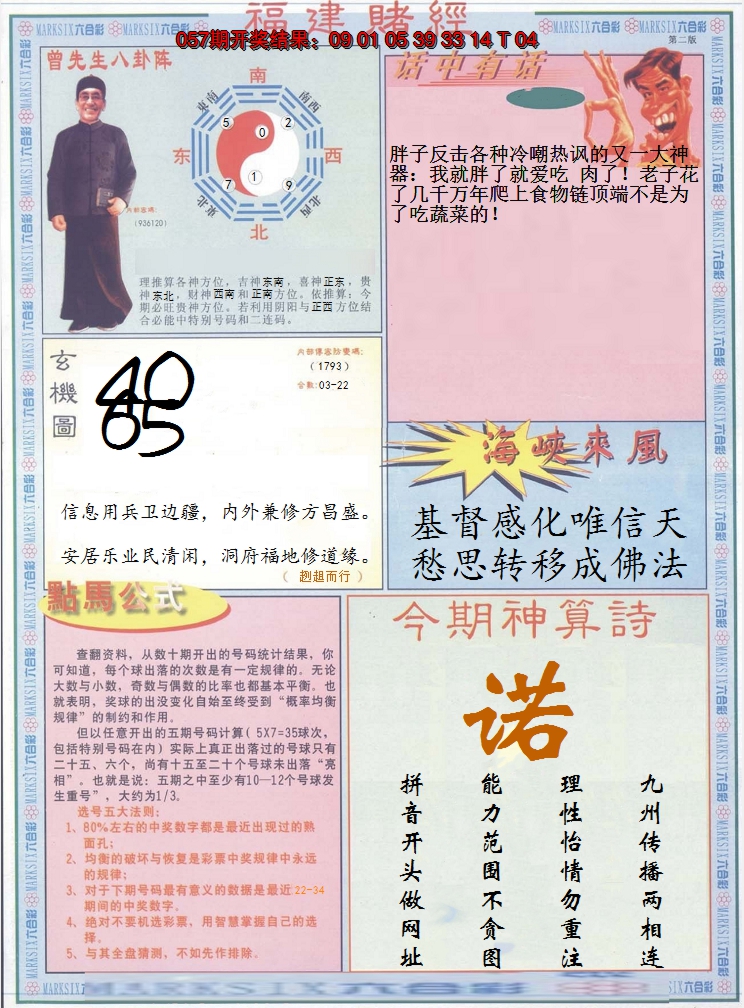 福建賭經
057期开奖结果：09 01 05 39 33 14 T 04
MARKSIX六合彩
第二版
曾先生八卦阵
南
东南
南西
5
0
2
东
西
7
1
9
東北
北西
北
内部密碼:
(936120)
理推算各神方位，吉神东南，喜神正东，贵
神东北，财神西南和正南方位。依推算：今
期必旺贵神方位。若利用阴阳与正西方位结
合必能中特别号码和二连码。
话中有话
胖子反击各种冷嘲热讽的又一大神
器：我就胖了就爱吃 肉了！老子花
了几千万年爬上食物链顶端不是为
了吃蔬菜的！
玄機圖
40
65
内部傳密防變碼:
(1793)
合數:03-22
信息用兵卫边疆，内外兼修方昌盛。
安居乐业民清闲，洞府福地修道缘。
（ 趔趄而行 ）
海峡來風
基督感化唯信天
愁思转移成佛法
點馬公式
查翻资料，从数十期开出的号码统计结果，你
可知道，每个球出落的次数是有一定规律的。无论
大数与小数，奇数与偶数的比率也都基本平衡。也
就表明，奖球的出没变化自始至终受到“概率均衡
规律”的制约和作用。
但以任意开出的五期号码计算( 5X7=35球次，
包括特别号码在内) 实际上真正出落过的号球只有
二十五、六个，尚有十五至二十个号球未出落“亮
相”。也就是说：五期之中至少有10—12个号球发
生重号”，大约为1/3。
选号五大法则：
1、80%左右的中奖数字都是最近出现过的熟
面孔；
2、均衡的破坏与恢复是彩票中奖规律中永远
的规律；
3、对于下期号码最有意义的数据是最近22-34
期间的中奖数字。
4、绝对不要机选彩票，用智慧掌握自己的选
择。
5、与其全盘猜测，不如先作排除。
今期神算詩
诺
九州传播两相连
理性怡情勿重注
能力范围不贪图
拼音开头做网址